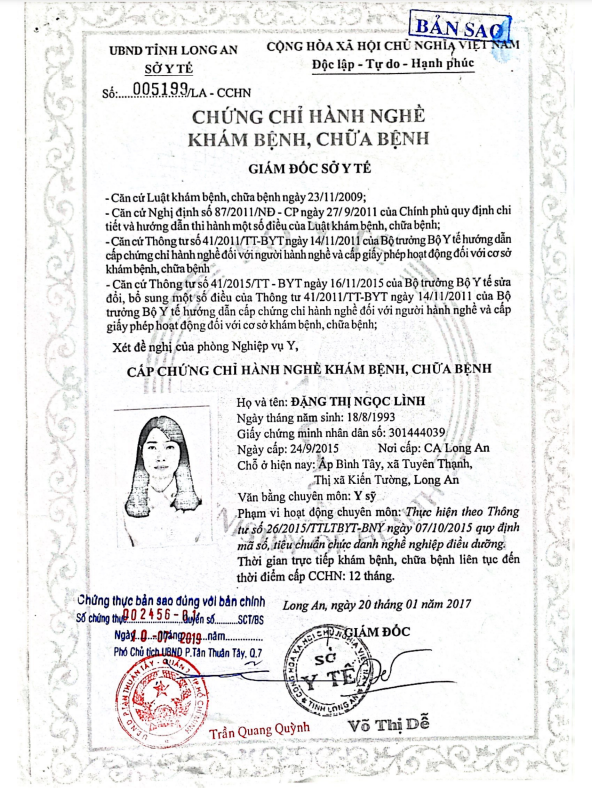 BẢN SAO
UBND TỈNH LONG AN
SỞ Y TẾ
CỘNG HÒA XÃ HỘI CHỦ NGHĨA VIỆT NAM
Độc lập - Tự do - Hạnh phúc
Số:......005199/LA - CCHN
CHỨNG CHỈ HÀNH NGHỀ
KHÁM BỆNH, CHỮA BỆNH
GIÁM ĐỐC SỞ Y TẾ
- Căn cứ Luật khám bệnh, chữa bệnh ngày 23/11/2009;
- Căn cứ Nghị định số 87/2011/NĐ - CP ngày 27/9/2011 của Chính phủ quy định chi
tiết và hướng dẫn thi hành một số điều của Luật khám bệnh, chữa bệnh;
- Căn cứ Thông tư số 41/2011/TT-BYT ngày 14/11/2011 của Bộ trưởng Bộ Y tế hướng dẫn
cấp chứng chỉ hành nghề đối với người hành nghề và cấp giấy phép hoạt động đối với cơ sở
khám bệnh, chữa bệnh
- Căn cứ Thông tư số 41/2015/TT - BYT ngày 16/11/2015 của Bộ trưởng Bộ Y tế sửa
đổi, bổ sung một số điều của Thông tư 41/2011/TT-BYT ngày 14/11/2011 của Bộ
trưởng Bộ Y tế hướng dẫn cấp chứng chỉ hành nghề đối với người hành nghề và cấp
giấy phép hoạt động đối với cơ sở khám bệnh, chữa bệnh;
Xét đề nghị của phòng Nghiệp vụ Y,
CẤP CHỨNG CHỈ HÀNH NGHỀ KHÁM BỆNH, CHỮA BỆNH
Họ và tên: ĐẶNG THỊ NGỌC LÌNH
Ngày tháng năm sinh: 18/8/1993
Giấy chứng minh nhân dân số: 301444039
Ngày cấp: 24/9/2015 Nơi cấp: CA Long An
Chỗ ở hiện nay: Ấp Bình Tây, xã Tuyên Thạnh,
Thị xã Kiến Tường, Long An
Văn bằng chuyên môn: Y sỹ
Phạm vi hoạt động chuyên môn: Thực hiện theo Thông
tư số 26/2015/TTLTBYT-BNV ngày 07/10/2015 quy định
mã số, tiêu chuẩn chức danh nghề nghiệp điều dưỡng.
Thời gian trực tiếp khám bệnh, chữa bệnh liên tục đến
thời điểm cấp CCHN: 12 tháng.
MINISTRY OF HEALTH
Chứng thực bản sao đúng với bản chính
Số chứng thực 002456 Quyển số.......SCT/BS
Ngày tháng 2019 năm
Phó Chủ tịch UBND P.Tân Thuận Tây, Q.7
Long An, ngày 20 tháng 01 năm 2017
GIÁM ĐỐC
CỘNG HÒA XÃ HỘI CHỦ NGHĨA VIỆT NAM
SỞ
Y TẾ
TỈNH LONG AN
U.B.N.D P.TÂN THUẬN TÂY - QUẬN 7 TP HỒ CHÍ MINH
Trần Quang Quỳnh
Võ Thị Dễ